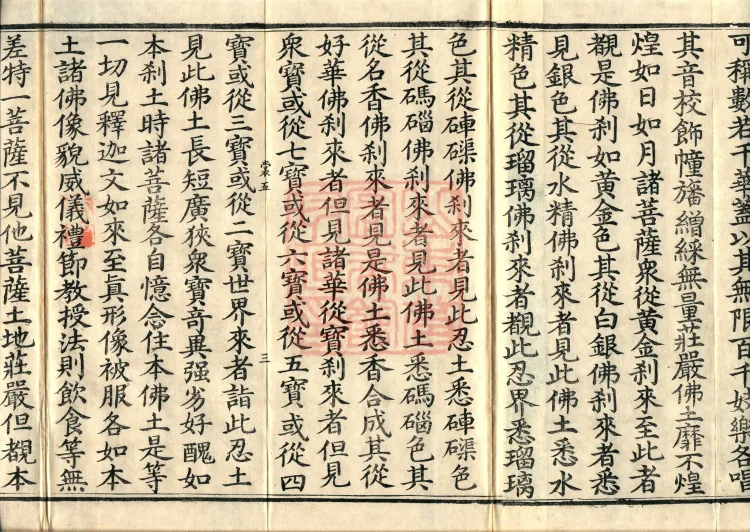 可稱數若干華蓋以其無限百千妓樂各唱
其音校飾幢旛繒綵無量莊嚴佛土靡不煌
煌如日如月諸菩薩衆從黃金刹來至此者
覩是佛刹如黃金色其從白銀佛刹來者悉
見銀色其從水精佛刹來者見此佛土悉水
精色其從瑠璃佛刹來者覩此忍界悉瑠璃
色其從硨磲佛刹來者見此忍土悉硨磲色
其從碼碯佛刹來者見此佛土悉碼碯色其
從名香佛刹來者見是佛土悉香合成其從
好華佛刹來者但見諸華從寶刹來者但見
衆寶或從七寶或從六寶或從五寶或從四
裳五 三
寶或從三寶或從二寶世界來者詣此忍土
見此佛土長短廣狹衆寶奇異强劣好醜如
本刹土時諸菩薩各自憶念住本佛土是等
一切見釋迦文如來至眞形像被服各如本
土諸佛像貌威儀禮節教授法則飲食等無
差特一菩薩不見他菩薩土地莊嚴但覩本